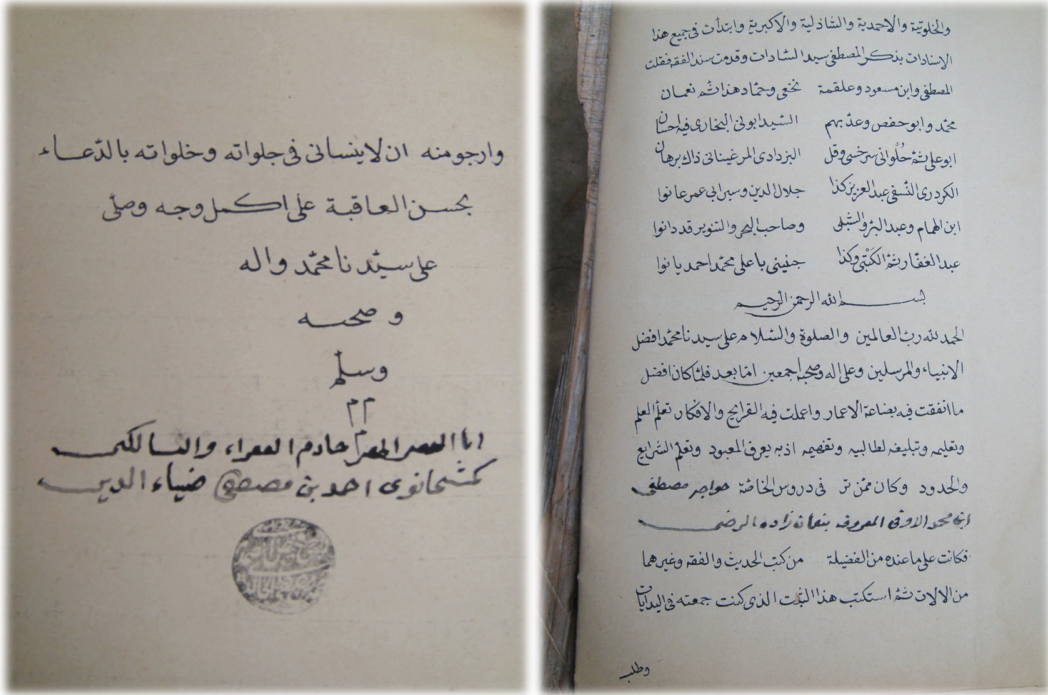 والخلوتية والاحمدية والشاذلية والاكبرية وابتدأت فى جميع هذا
الاسنادات بذكر المصطفى سيد السادات وقدمت سند الفقه فقلت
المصطفى وابن مسعود وعلقمة نخعى وحماد هذا ثم نعمان
محمد وابو حفص وعد بهم السيد ابونى البخارى فيه احسان
ابو على ثم حلوانى سرخسى وقل البزدادى المرغينانى ذاك برهان
الكردرى النسفى عبد العزيز كذا جلال الدين وسيرابى عمر عانوا
ابن الهمام وعبد البر والشلبى وصاحب البحر والتنوير قد دانوا
عبد الغفار ثم الكتبى وكذا جنينى با على محمد احمد بانوا
بسم الله الرحمن الرحيم
الحمد لله رب العالمين والصلوة والسلام على سيدنا محمد افضل
الانبياء والمرسلين وعلى اله وصحبه اجمعين اما بعد فلما كان افضل
ما انفقت فيه بضاعة الاعمار واعملت فيه القرايح والافكار تعلم العلم
وتعليمه وتبليغه لطالبيه وتفهيمه اذ به يعرف المعبود وتعلم الشرايع
والحدود وكان ممن تر فى دروس الخاصة خواجه مصطفى
ابن محمد الاوفى المعروف بنعمان زاده الرضى
فكانت على ما عنده من الفضيلة من كتب الحديث والفقه وغيرهما
من الالات ثم استكتب هذا الثبت الذى كنت جمعته فى البدايات
وطلب
وارجو منه ان لا ينسانى فى جلواته وخلواته بالدعاء
بحسن العاقبة على اكمل وجه وصلى
على سيدنا محمد واله
وصحبه
وسلم
م م
انا الفقير المعترف خادم الفقراء والسالكين
كمشخانوى احمد بن مصطفى ضياء الدين